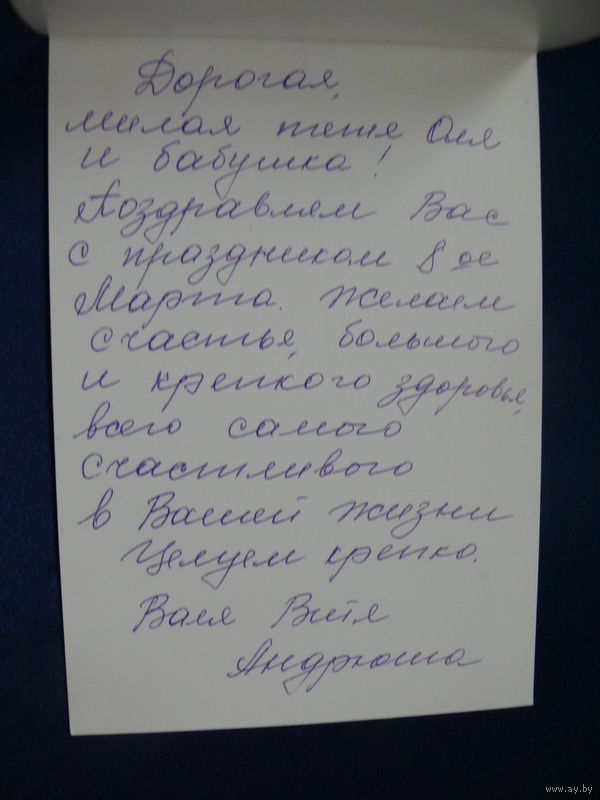 Дорогая,
милая тётя Оля
и бабушка!
Поздравляем Вас
с праздником 8 ое
Марта. Желаем
счастья, большого
и крепкого здоровья,
всего самого
счастливого
в Вашей жизни
Целуем крепко.
Валя Витя
Андрюша
www.ay.by